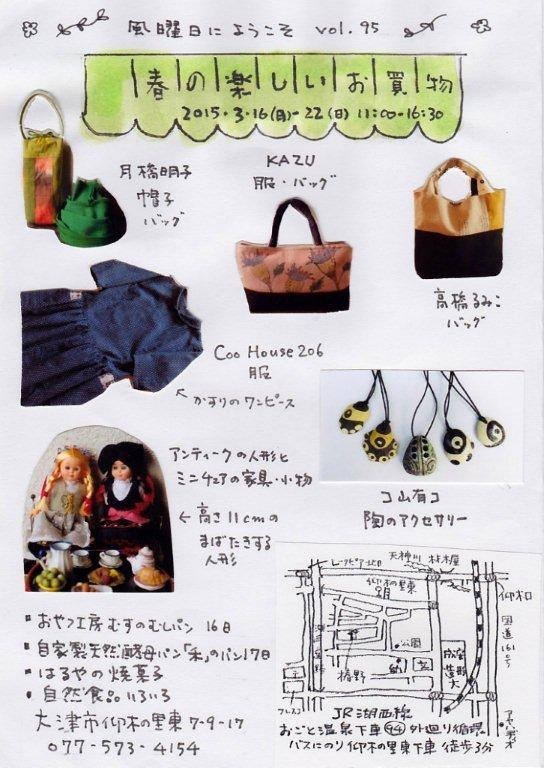 風曜日にようこそ vol.95
春の楽しいお買物
2015.3.16(月)-22(日) 11:00-16:30
月橋明子
帽子
バッグ
KAZU
服・バッグ
高橋るみこ
バッグ
Coo House 206
服
かすりのワンピース
アンティークの人形と
ミニチュアの家具・小物
高さ11cmの
まばたきする
人形
コ山有コ
陶のアクセサリー
おやつ工房むすのむしパン 16日
自家製天然酵母パン「禾」のパン17日
はるやの焼菓子
自然食品いろいろ
大津市仰木の里東7-9-17
077-573-4154
レークピア
天神川
仰木の里東
公園
成安造形大
国道161号
椿野
JR湖西線
おごと温泉下車 44 外廻り循環
バスにのり仰木の里東下車 徒歩3分